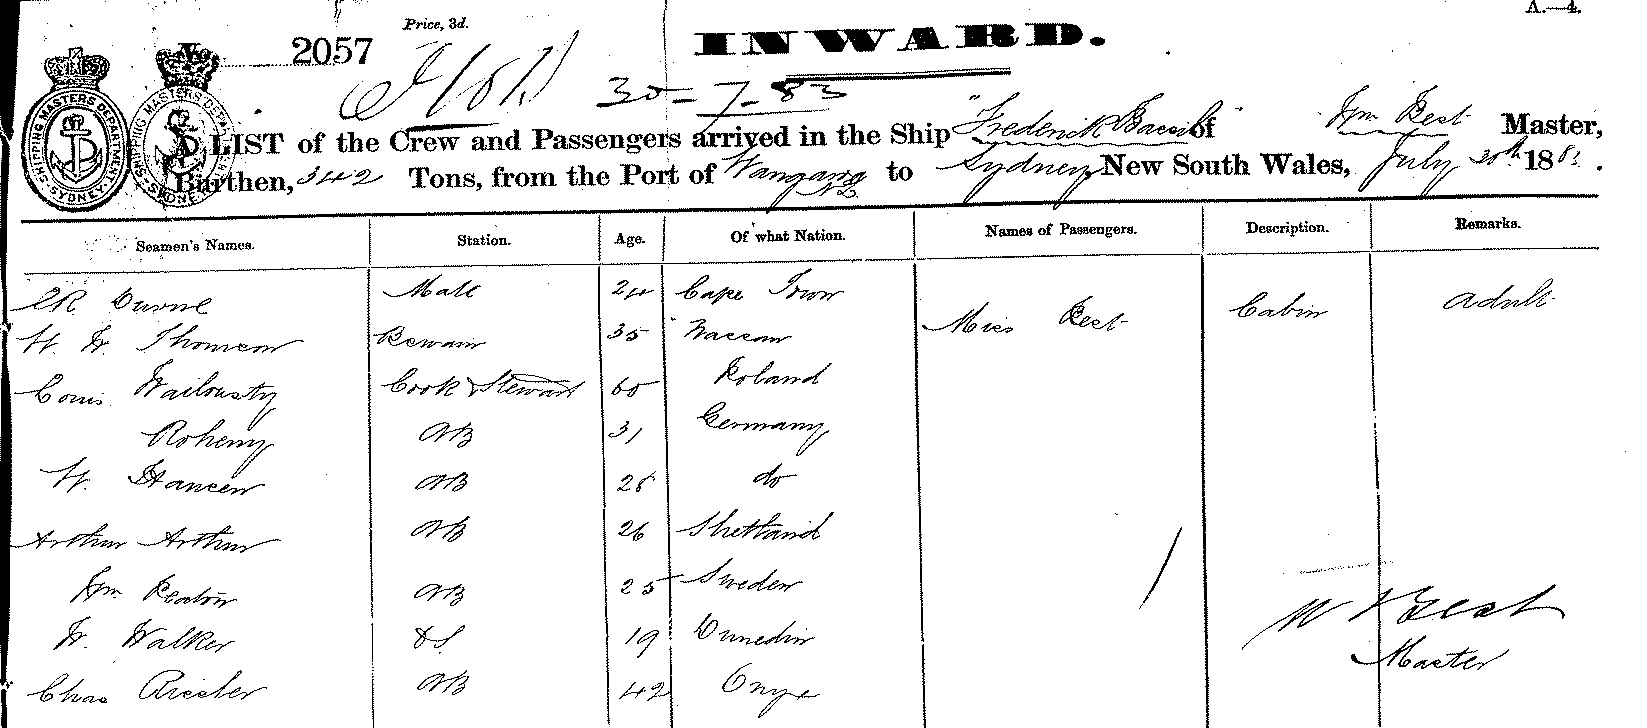 A.—4.
Price, 3d.
No. 2057
INWARD.
30-7-83
SHIPPING MASTERS DEPARTMENT SYDNEY
A LIST of the Crew and Passengers arrived in the Ship "Frederick Bassil" of Wm Best Master,
Burthen, 342 Tons, from the Port of Wangang NZ to Sydney New South Wales, July 30th 1883.
Seamen's Names. Station. Age. Of what Nation. Names of Passengers. Description. Remarks.
Mate 24 Cape Town
H. W. Thomson 35 Nassau Miss Best Cabin Adult
Louis Cook & Steward 60 Poland
AB 31 Germany
H. Hansen AB 25 do
Arthur Arthur AB 26 Shetland
Wm AB 25 Sweden
W. Walker OS 19 Dunedin
Chas AB 42
W Best
Master